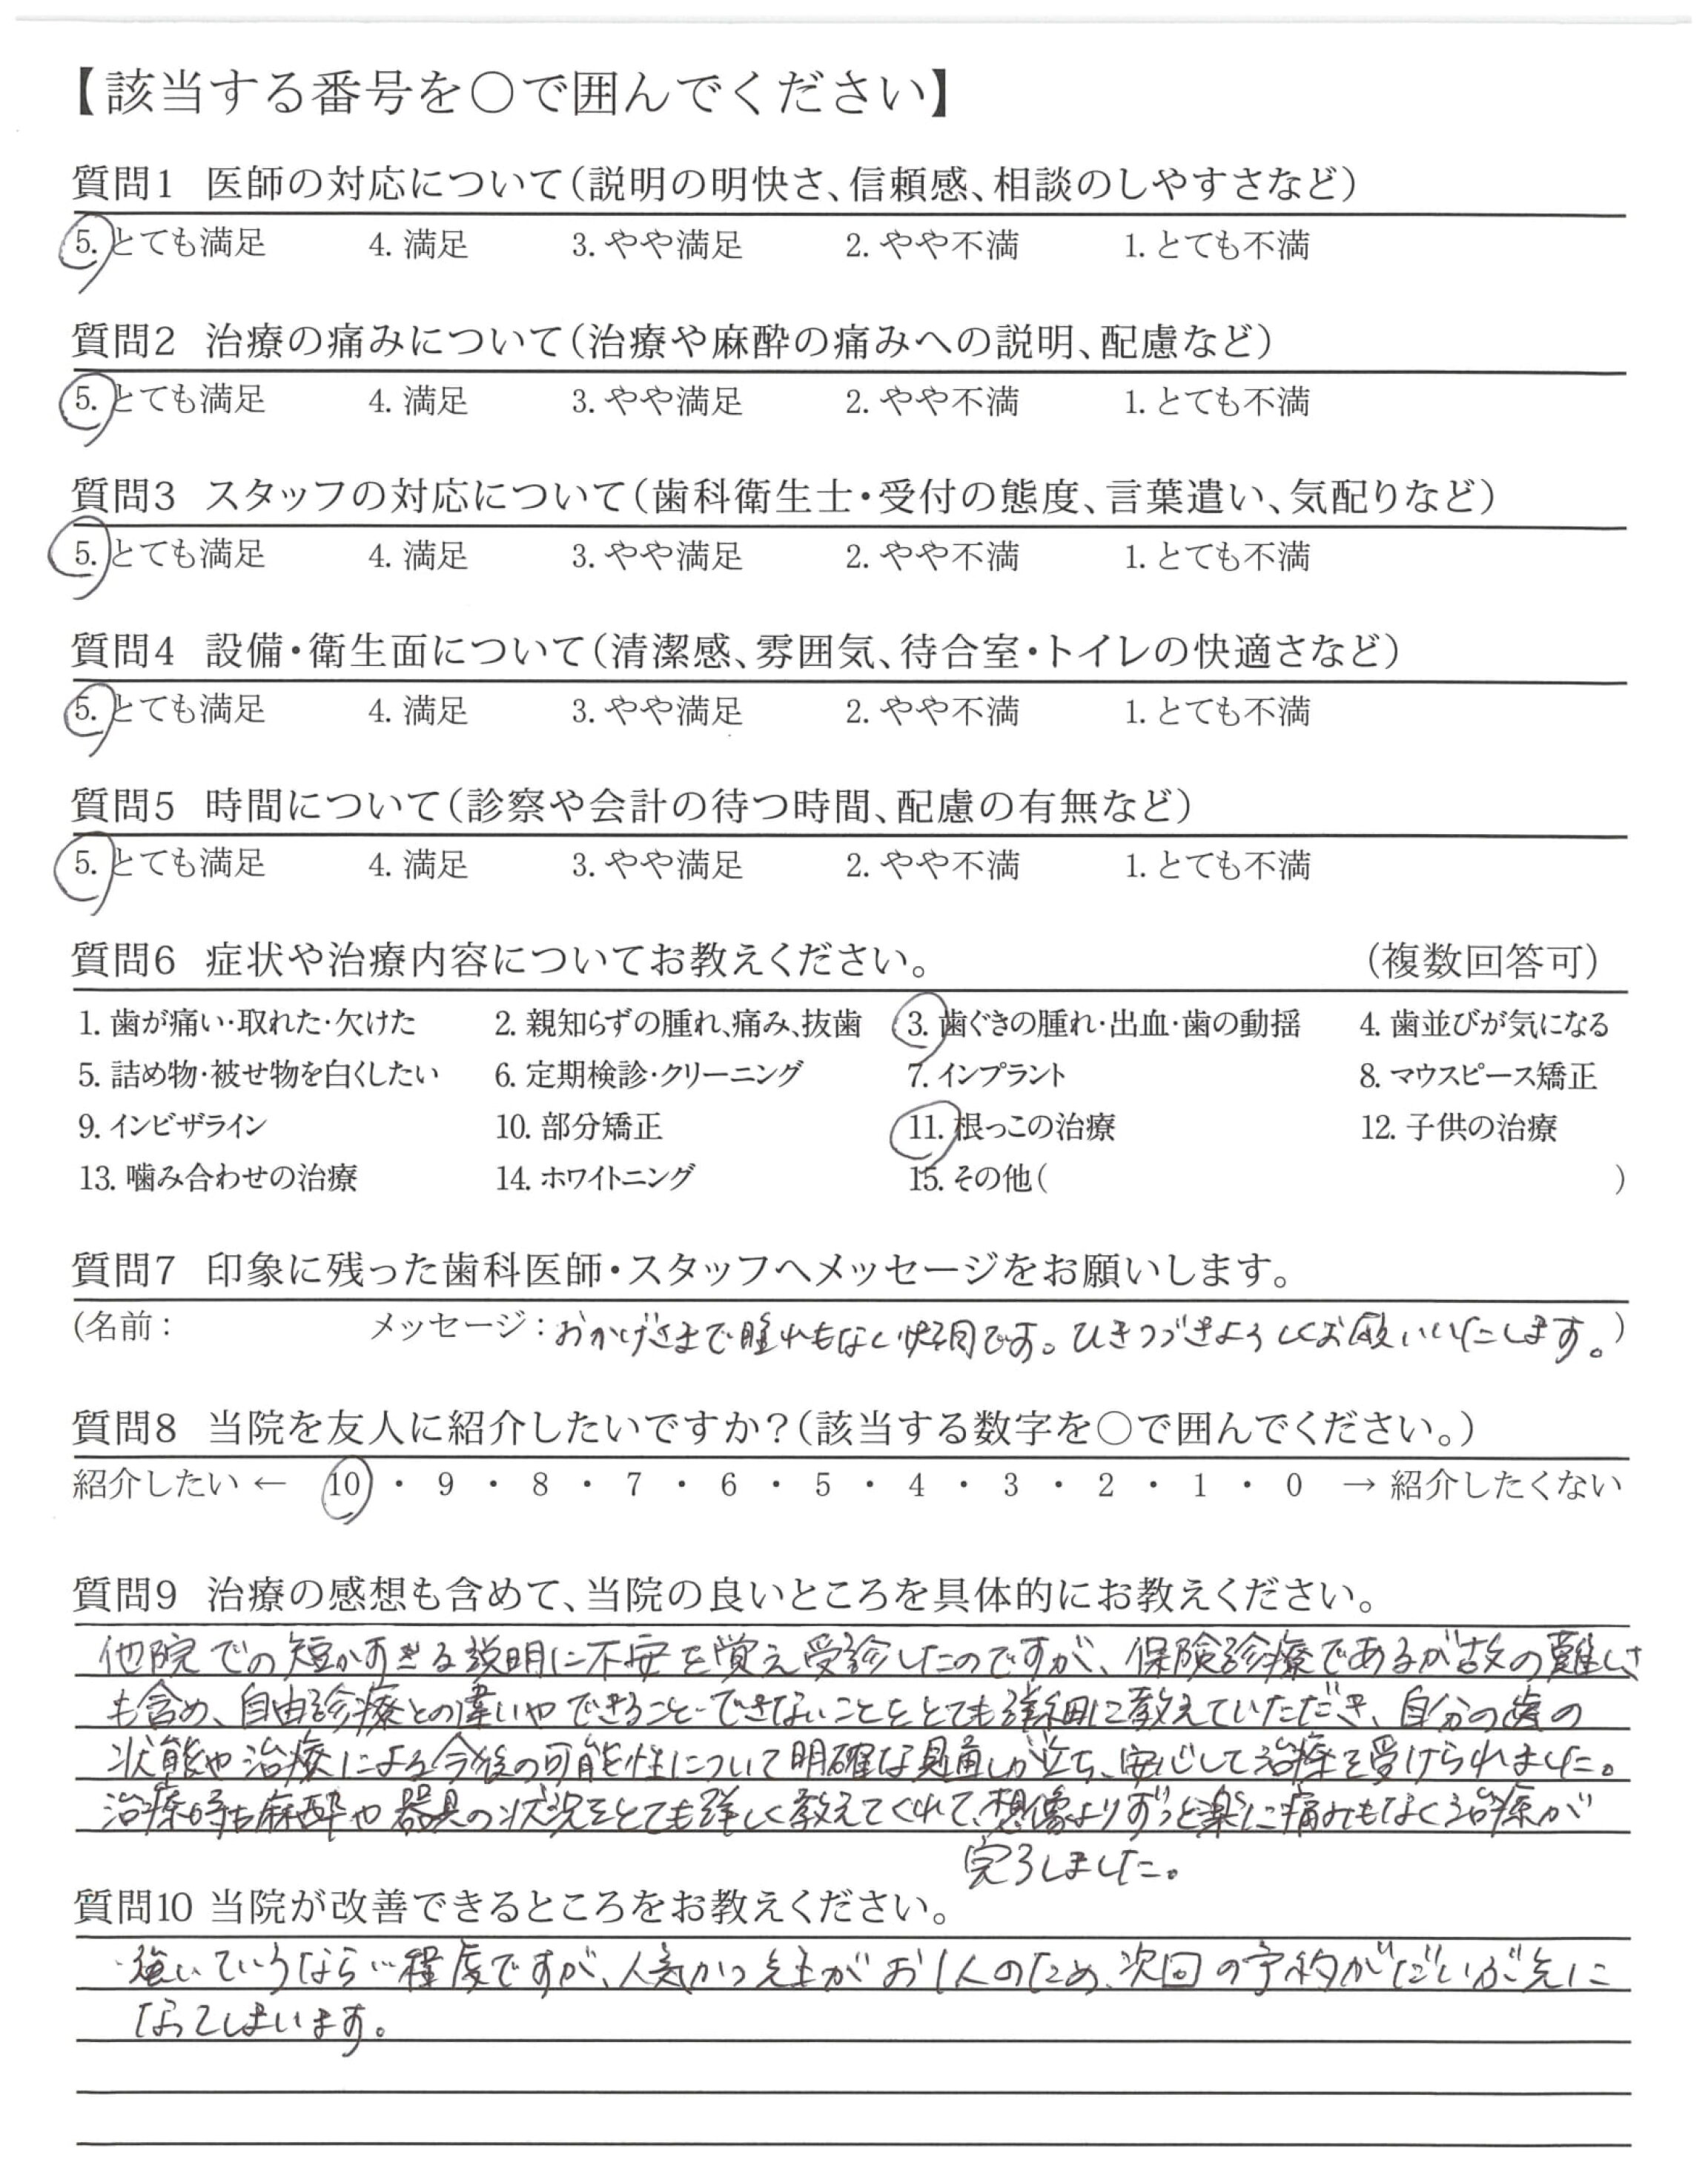 【該当する番号を〇で囲んでください】
質問1 医師の対応について(説明の明快さ、信頼感、相談のしやすさなど)
5. とても満足 4. 満足 3. やや満足 2. やや不満 1. とても不満
質問2 治療の痛みについて(治療や麻酔の痛みへの説明、配慮など)
5. とても満足 4. 満足 3. やや満足 2. やや不満 1. とても不満
質問3 スタッフの対応について(歯科衛生士・受付の態度、言葉遣い、気配りなど)
5. とても満足 4. 満足 3. やや満足 2. やや不満 1. とても不満
質問4 設備・衛生面について(清潔感、雰囲気、待合室・トイレの快適さなど)
5. とても満足 4. 満足 3. やや満足 2. やや不満 1. とても不満
質問5 時間について(診察や会計の待つ時間、配慮の有無など)
5. とても満足 4. 満足 3. やや満足 2. やや不満 1. とても不満
質問6 症状や治療内容についてお教えください。 (複数回答可)
1. 歯が痛い・取れた・欠けた 2. 親知らずの腫れ、痛み、抜歯 3. 歯ぐきの腫れ・出血・歯の動揺 4. 歯並びが気になる
5. 詰め物・被せ物を白くしたい 6. 定期検診・クリーニング 7. インプラント 8. マウスピース矯正
9. インビザライン 10. 部分矯正 11. 根っこの治療 12. 子供の治療
13. 噛み合わせの治療 14. ホワイトニング 15. その他( )
質問7 印象に残った歯科医師・スタッフへメッセージをお願いします。
(名前: メッセージ:おかげさまで腫れもなく快調です。ひきつづきよろしくお願いいたします。)
質問8 当院を友人に紹介したいですか?(該当する数字を〇で囲んでください。)
紹介したい ← 10 ・ 9 ・ 8 ・ 7 ・ 6 ・ 5 ・ 4 ・ 3 ・ 2 ・ 1 ・ 0 → 紹介したくない
質問9 治療の感想も含めて、当院の良いところを具体的にお教えください。
他院での短かすぎる説明に不安を覚え受診したのですが、保険診療であるが故の難しさ
も含め、自由診療との違いやできること・できないことをとても詳細に教えていただき、自分の歯の
状態や治療による今後の可能性について明確な見通しが立ち、安心して治療を受けられました。
治療時も麻酔や器具の状況をとても詳しく教えてくれて、想像よりずっと楽に痛みもなく治療が
完了しました。
質問10 当院が改善できるところをお教えください。
強いていうなら…程度ですが、人気かつ先生がお1人のため、次回の予約がだいぶ先に
なってしまいます。